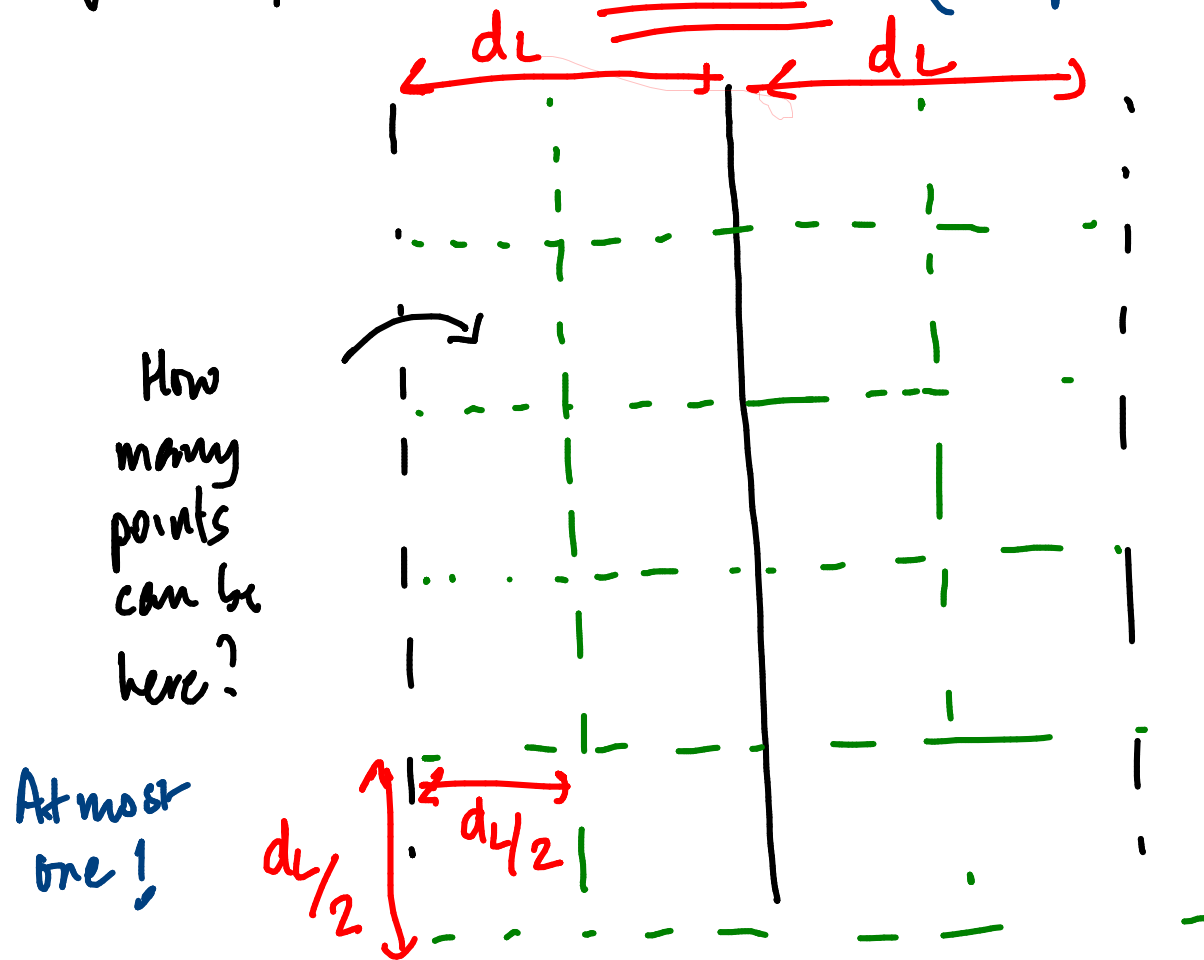 dL
dL
How
many
points
can be
here?
At most
one!
dL/2
dL/2